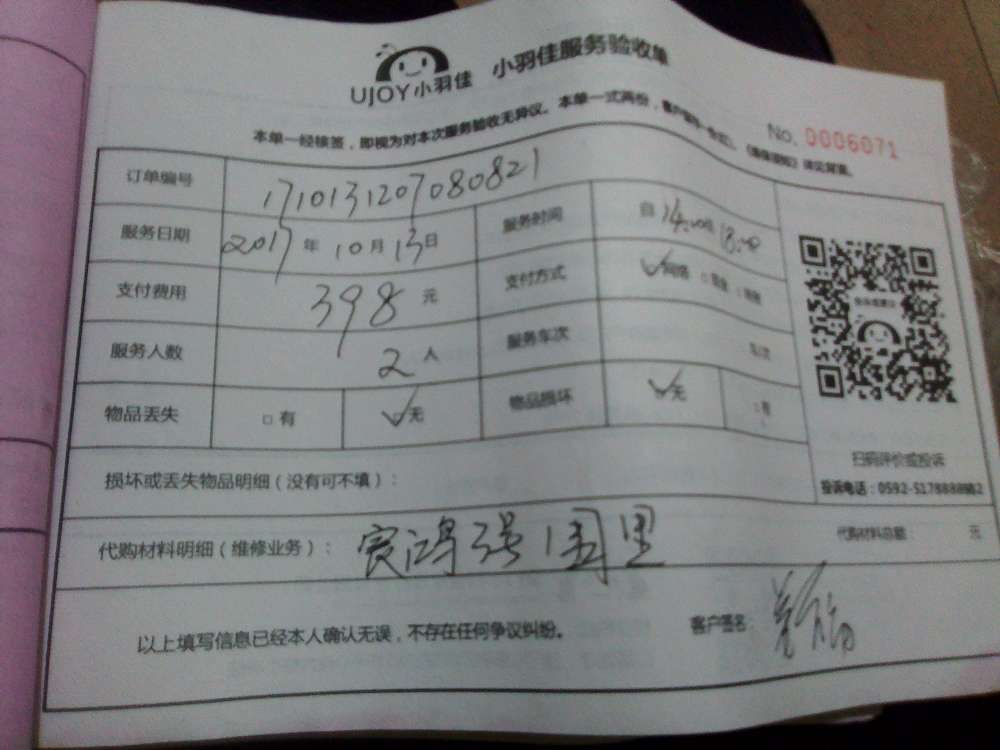 UJOY小羽佳 小羽佳服务验收单
No. 0006071
本单一经核签，即视为对本次服务验收无异议。本单一式两份，
订单编号 1710131207080821
服务日期 2017年10月13日 服务时间 自14:00至18:00
支付费用 398元 支付方式 ✓网络 □现金
服务人数 2人 服务车次
物品丢失 □有 ✓无 物品损坏 ✓无 □有
扫码评价或投诉
损坏或丢失物品明细（没有可不填）：
代购材料明细（维修业务）： 代购材料总额： 元
以上填写信息已经本人确认无误，不存在任何争议纠纷。 客户签名：